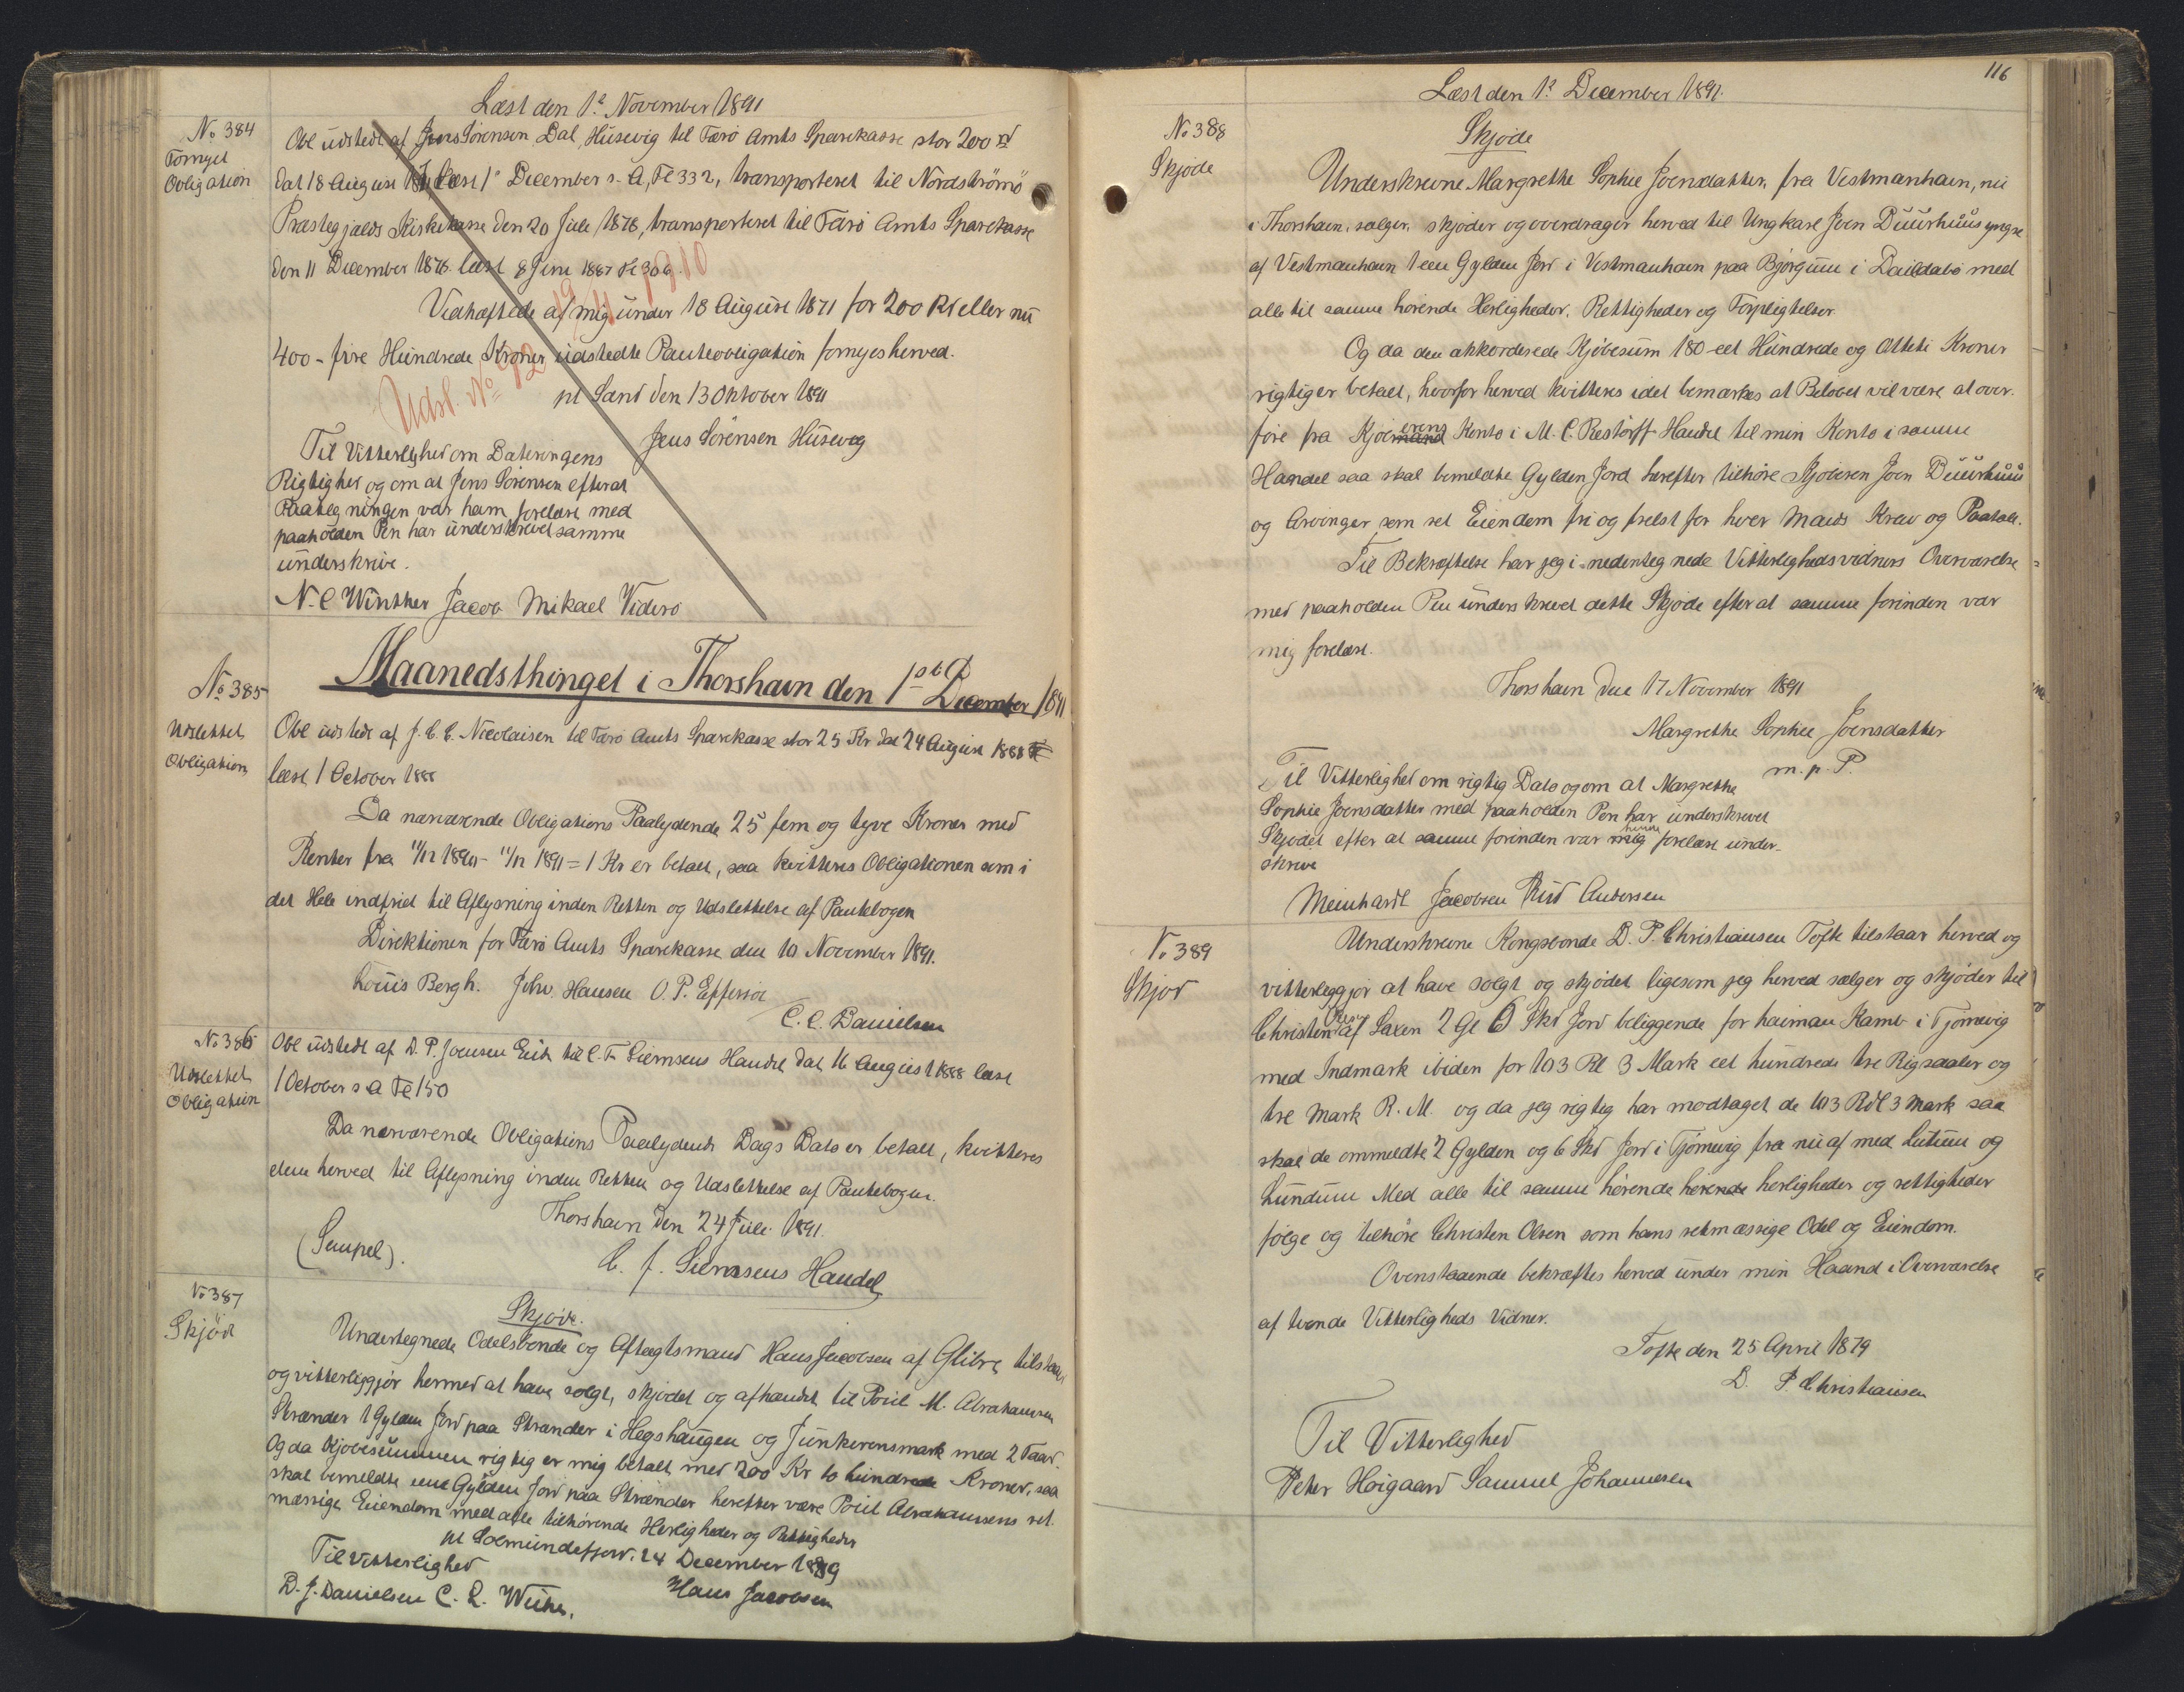 Læst den 1e November 1891
No 384
Fornyet
Obligation
Obl udstedt af Jens Sörensen Dal, Husevig til Færö Amts Sparekasse stor 200 Rd
dat 18 August 1871 læst 1e December s. A, Fe 332, transporteret til Nordströmö
Præstegjælds Kirkekasse den 20 Juli 1878, transporteret til Færö Amts Sparekasse
den 11 December 1878. læst 8 Juni 1887 Fe 306.
Vedhæftede af mig under 18 August 1871 for 200 Rd eller nu
400 - fire Hundrede Kroner udstedte Panteobligation fornyes herved.
Udsl. No
pt Sand den 13 Oktober 1891
Jens Sörensen Husevig
Til Vitterlighed om Dateringens
Rigtighed og om at Jens Sörensen efterat
Paategningen var ham forelæst med
paaholden Pen har underskrevet samme
underskrive.
N. C Winther Jacob Mikael Viderö
Maanedsthinget i Thorshavn den 1ste December 1891
No 385
Udslettet
Obligation
Obl udstedt af J. C. E. Nicolaisen til Færö Amts Sparekasse stor 25 Kr dat 24 August 1888
læst 1 October 1888
Da nærværende Obligations Paalydende 25 fem og tyve Kroner med
Renter fra 11/12 1890 - 11/12 1891 = 1 Kr er betalt, saa kvitteres Obligationen som i
det Hele indfriet til Aflysning inden Retten og Udslettelse af Pantebogen
Direktionen for Færö Amts Sparekasse den 10 November 1891.
Louis Bergh. Johs. Hansen O. P. Effersöe
C. C. Danielsen
No 386
Udslettet
Obligation
Obl udstedt af D. P. Joensen Eide til C. F. Siemsens Handel dat 16 August 1888 læst
1 October s A Fe 150
Da nærværende Obligations Paalydende Dags Dato er betalt, kvitteres
den herved til Aflysning inden Retten og Udslettelse af Pantebogen.
Thorshavn den 24 Juli 1891.
(Stempel).
C. F. Siemsens Handel
No 387
Skjöde
Skjöde.
Undertegnede Odelsbonde og Aftægtsmand Hans Jacobsen af Glibre tilstaar
og vitterliggjör hermed at have solgt, skjödet og afhændet til Poul M. Abrahamsen
Strænder 1 Gylden Jord paa Strænder i Hegshaugen og Junkerensmark med 2 Faar.
Og da Kjöbesummen rigtig er mig betalt med 200 Kr to hundrede Kroner, saa
skal bemeldte ene Gylden Jord paa Strænder herefter være Poul Abrahamsens ret
mæssige Eiendom med alle tilhörende Herligheder og Rettigheder
pt Solmundefjord. 24 December 1889
Til Vitterlighed
D. J. Danielsen C. L.
Hans Jacobsen
116
Læst den 1e December 1891.
No 388
Skjöde
Skjöde
Underskrevne Margrethe Sophie Joensdatter, fra Vestmanhavn, nu
i Thorshavn, sælger, skjöder og overdrager herved til Ungkarl Joen Duurhuus yngre
af Vestmanhavn 1 een Gylden Jord i Vestmanhavn paa Björgum i Daildabö med
alle til samme hörende Herligheder, Rettigheder og Forpligtelser.
Og da den akkorderede Kjöbesum 180 - eet Hundrede og Otteti Kroner
rigtig er betalt, hvorfor herved kvitteres idet bemærkes at Belöbet vil være at over-
före fra Kjöberens Konto i M. C. Restorff Handel til min Konto i samme
Handel saa skal bemeldte Gylden Jord herefter tilhöre Kjöberen Joen Duurhuus
og Arvinger som ret Eiendom fri og frelst for hver Mands Krav og Paatale.
Til Bekræftelse har jeg i nedentegnede Vitterlighedsvidners Overværelse
med paaholden Pen underskrevet dette Skjöde efter at samme forinden var
mig forelæst.
Thorshavn den 17 November 1891
Margrethe Sophie Joensdatter
m. p. P.
Til Vitterlighed om rigtig Dato og om at Margrethe
Sophie Joensdatter med paaholden Pen har underskrevet
Skjödet efter at samme forinden var hende forelæst under-
skrive
Meinhardt Jacobsen Rud Andersen
No 389
Skjöd
Underskrevne Kongsbonde D. P. Christiansen Tofte tilstaar herved og
vitterliggjör at have solgt og skjödet ligesom jeg herved sælger og skjöder til
Christen Olsen af Saxen 2 Gl 6 Skd Jord beliggende for haiman Kamb i Tjörnevig
med Indmark ibiden for 103 Rd 3 Mark eet hundrede tre Rigsdaler og
tre Mark R. M. og da jeg rigtig har modtaget de 103 Rdl 3 Mark saa
skal de ommeldte 2 Gylden og 6 Skd Jord i Tjörnevig fra nu af med Lutum og
Lundum Med alle til samme hörende herende herligheder og rettigheder
fölge og tilhöre Christen Olsen som hans retmæssige Odel og Eiendom.
Ovenstaaende bekræftes herved under min Haand i Overværelse
af tvende Vitterligheds Vidner.
Tofte den 25 April 1879
D. P. Christiansen
Til Vitterlighed
Peter Höigaard Samuel Johannesen